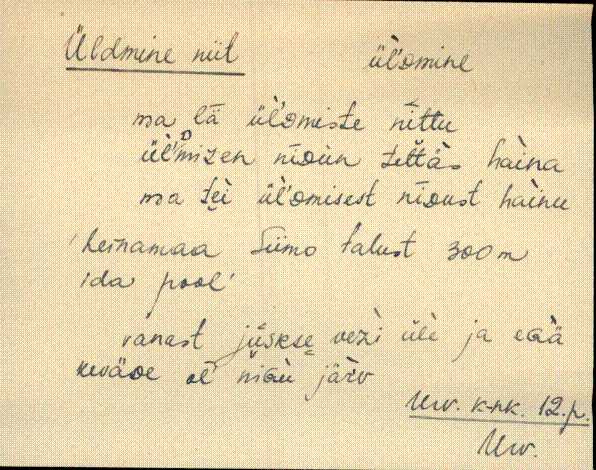 Üldmine niit ül'omine
ma lä ül'omiste nīttu
ül'ömizen nīoùn tettäs haìna
ma teì ül'omisest nīoust haìnu
'heinamaa Siimo talust 300 m
ida pool'
vanast jüskse vezì üle ja egä
keväoe ol' niGu järv
Urv. k-nk. 12.p.
Urv.